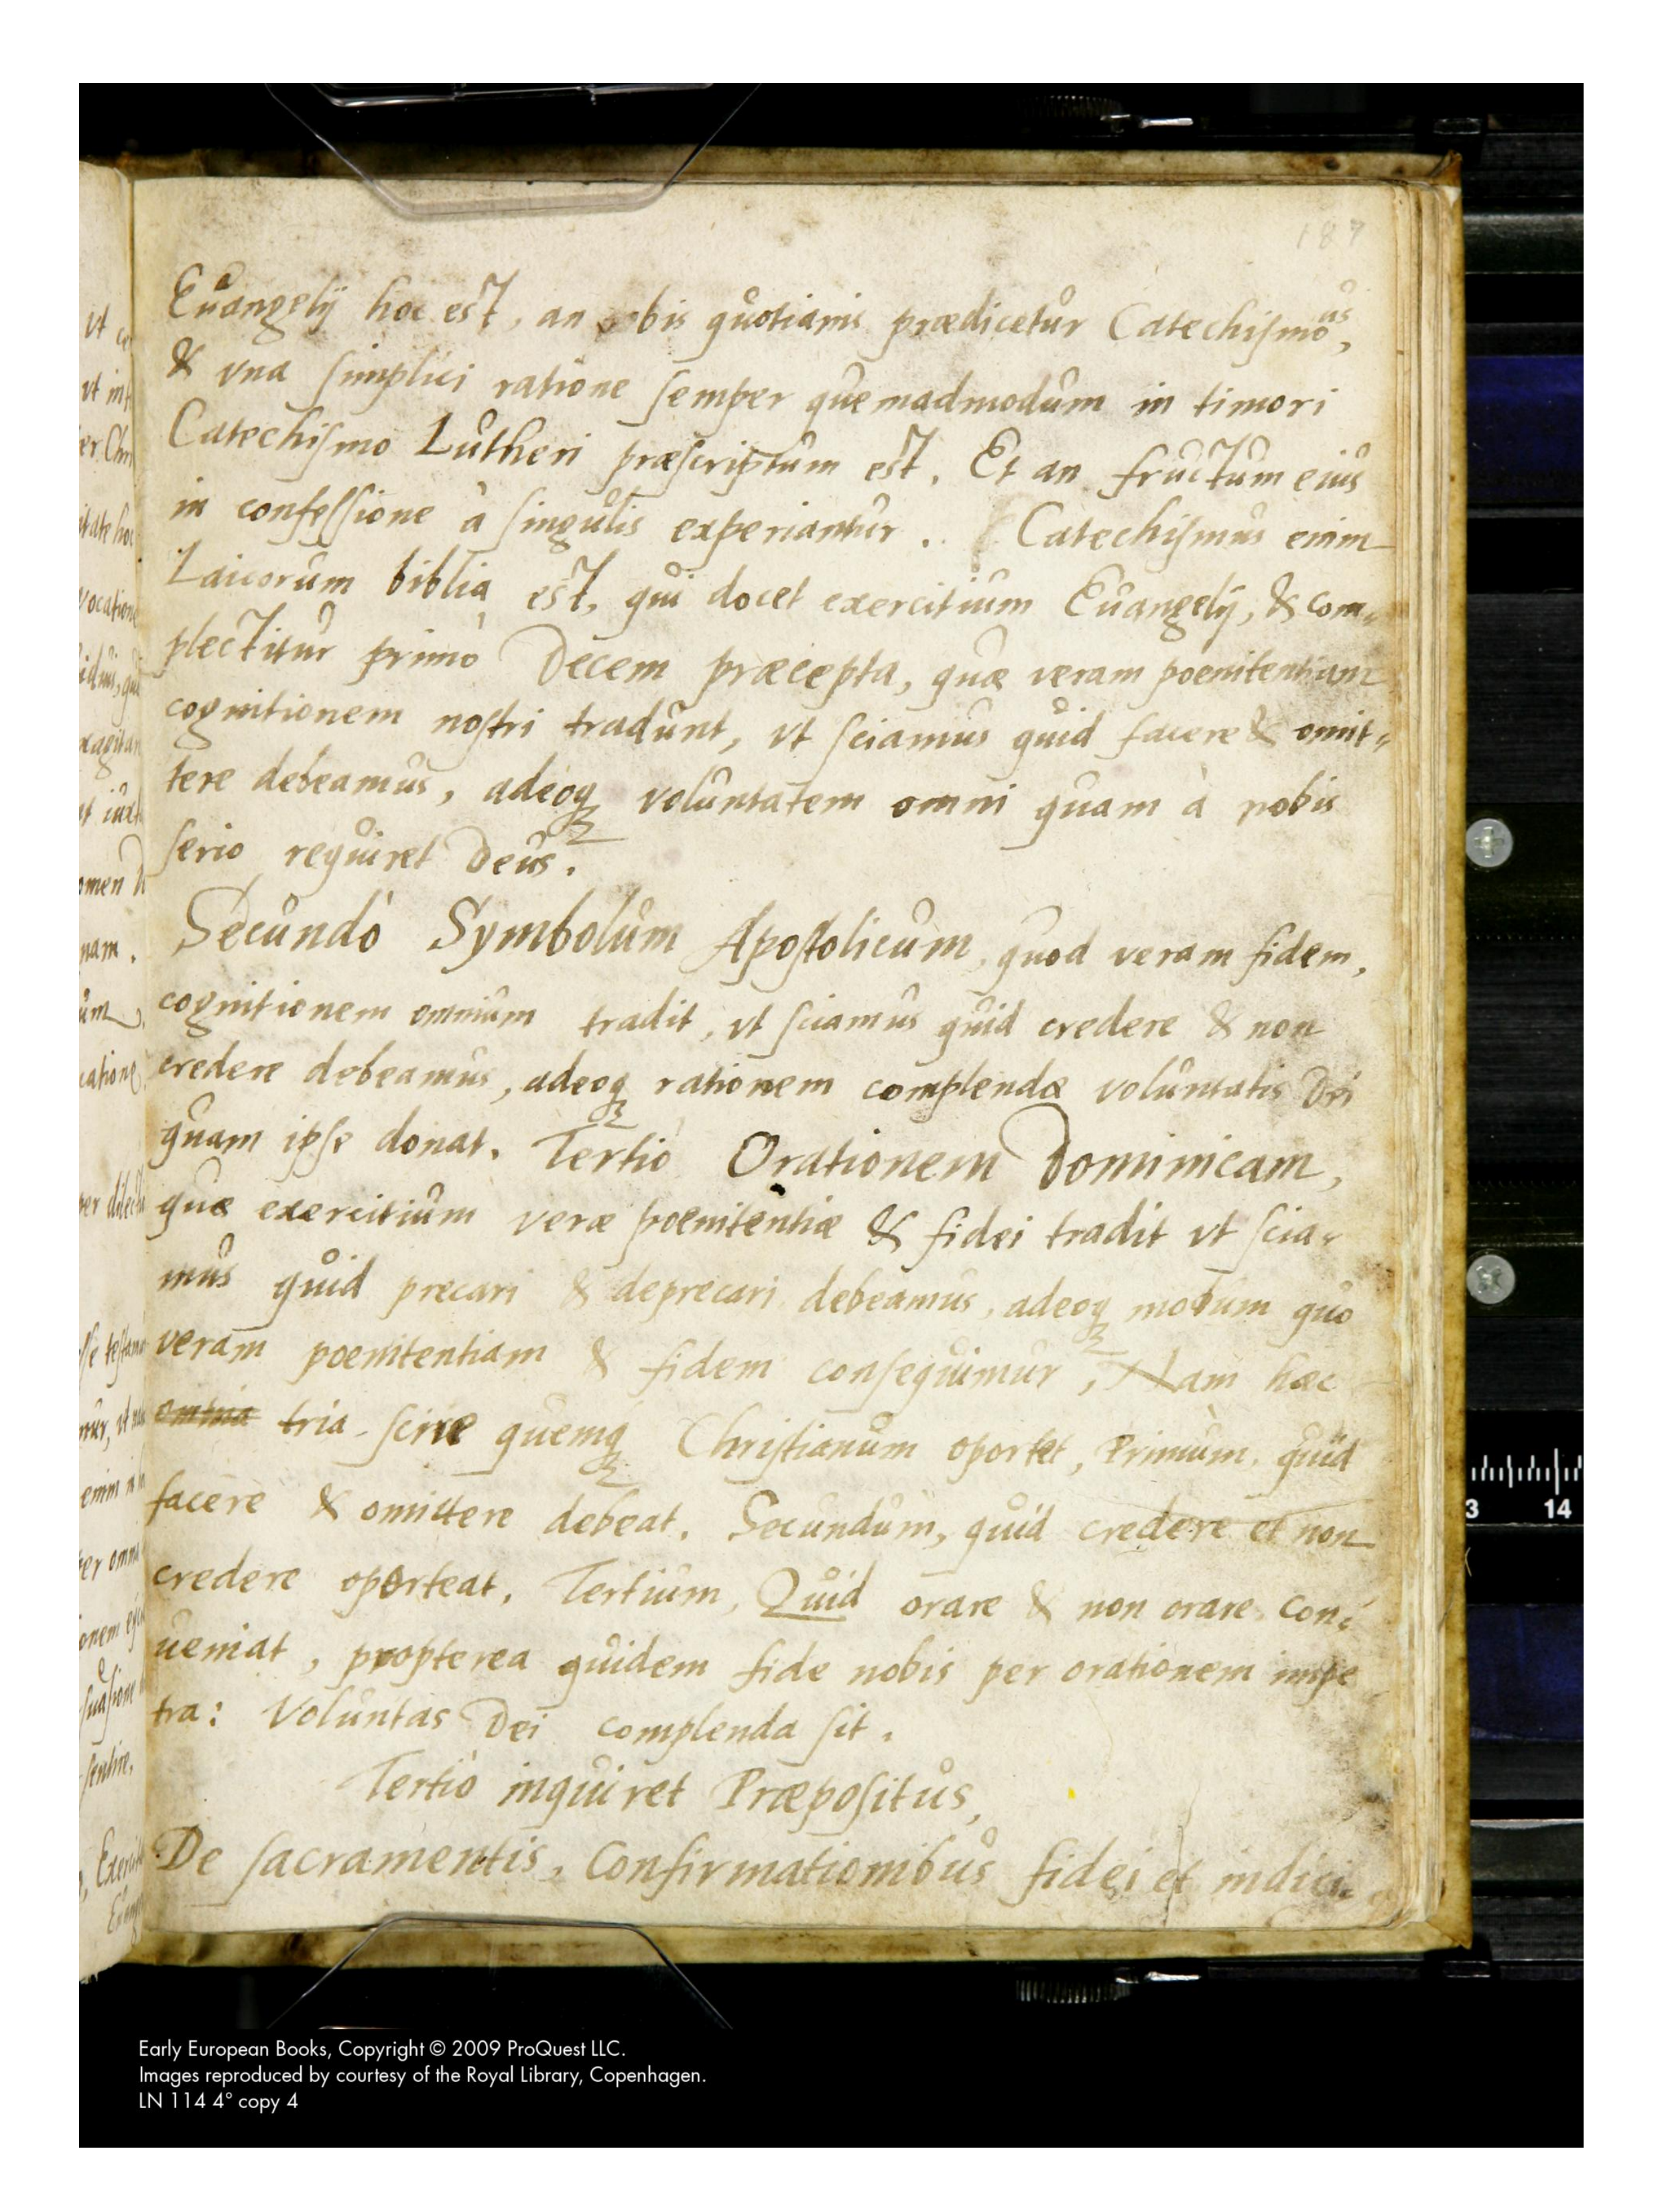 187
Euangelij hoc est, an obis quotianis prædicetur Catechismous,
& vna simplici ratione semper quemadmodum in timori
Catechismo Lutheri præscriptum est. Et an fructum eius
in confessione à singulis experiantur. Catechismus enim
Laicorum biblia est, qui docet exercitium Euangelij, & com„
plectitur primò Decem præcepta, quæ veram poenitentiam
cognitionem nostri tradunt, vt sciamus quid facere & omit„
tere debeamus, adeoq voluntatem omni quam à nobis
serio requiret Deus.
Secundò Symbolum Apostolicum, quod veram fidem,
cognitionem omnium tradit, vt sciamus quid credere & non
credere debeamus, adeoq rationem complendæ voluntatis Dei
quam ipse donat. Tertiò Orationem Dominicam,
quæ exercitium veræ poenitentiæ & fidei tradit vt scia„
mus quid precari & deprecari debeamus, adeoq modum quo
veram poenitentiam & fidem consequimur, Nam hæc
omnia tria scire quemq Christianum oportet, Primum, quid
facere & omittere debeat. Secundum, quid credere et non
credere oporteat. Tertium, Quid orare & non orare con„
ueniat, propterea quidem fide nobis per orationem impe
tra: Voluntas Dei complenda sit.
Tertiò inquiret Præpositus,
De sacramentis, Confirmationibus fidei et indici„
Early European Books, Copyright © 2009 ProQuest LLC.
Images reproduced by courtesy of the Royal Library, Copenhagen.
LN 114 4° copy 4
3 14